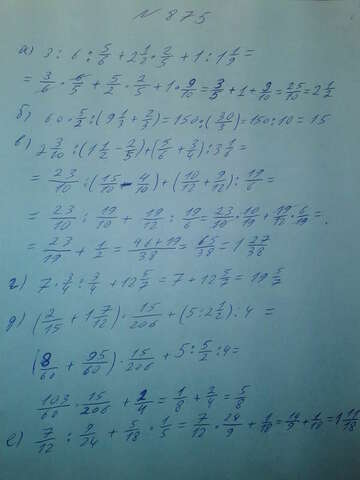 № 875
а) 3 : 6 : 5/6 + 2 1/2 · 2/5 + 1 : 1 1/9 =
= 3/6 · 6/5 + 5/2 · 2/5 + 1 · 9/10 = 3/5 + 1 + 9/10 = 25/10 = 2 1/2
б) 60 · 5/2 : (9 1/3 + 2/3) = 150 : (30/3) = 150 : 10 = 15
в) 2 3/10 : (1 1/2 - 2/5) + (5/6 + 3/4) : 3 1/6 =
= 23/10 : (15/10 - 4/10) + (10/12 + 9/12) : 19/6 =
= 23/10 : 19/10 + 19/12 : 19/6 = 23/10 · 10/19 + 19/12 · 6/19 =
= 23/19 + 1/2 = 46+19/38 = 65/38 = 1 27/38
г) 7 · 3/4 : 3/4 + 12 5/7 = 7 + 12 5/7 = 19 5/7
д) (2/15 + 1 7/12) · 15/206 + (5 : 2 1/2) : 4 =
(8/60 + 95/60) · 15/206 + 5 : 5/2 : 4 =
103/60 · 15/206 + 2/4 = 1/8 + 2/4 = 5/8
е) 7/12 : 9/24 + 5/18 · 1/5 = 7/12 · 24/9 + 1/18 = 14/9 + 1/18 = 1 11/18